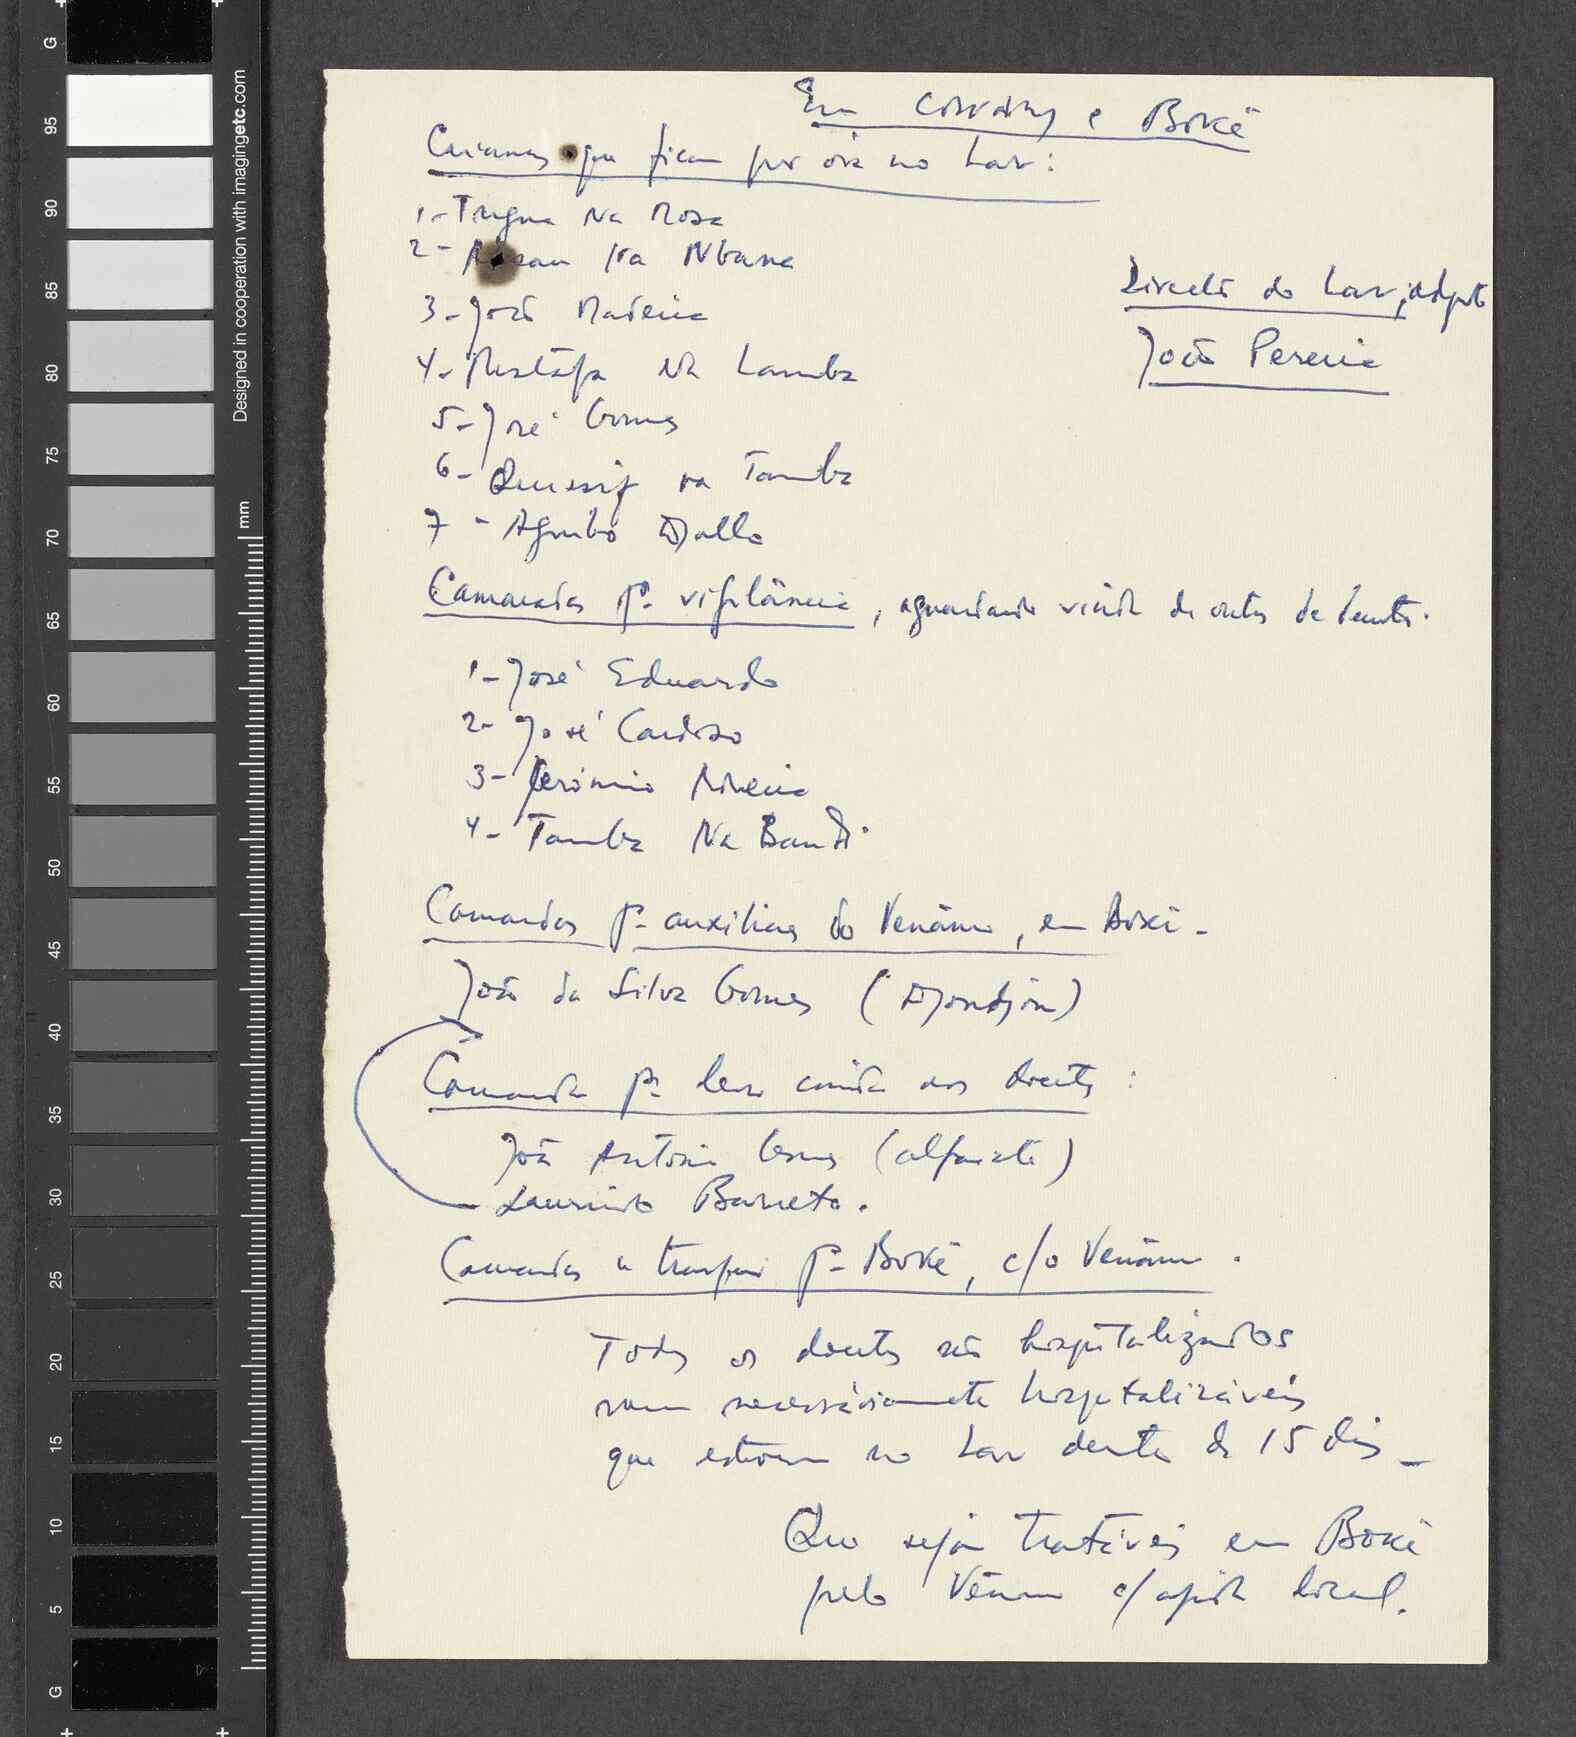 Em Conakry e Boké
Crianças que ficam por ora no Lar:
1- Tungna Na Rosa
2- Na Nbana
3- José Madeira
4- Mustáfa Na Lamba
5- José Gomes
6- na Tamba
7 - Agnibo Djallo
Director do Lar, adjunto
João Pereira
Camaradas pª vigilância, aguardando vinda de outros de dentro.
1- José Eduardo
2- José Cardoso
3- Jerónimo Moreira
4- Tamba Na Bandé
Camaradas pª auxiliares do Venâncio, em Boké -
João da Silva Gomes (Djondjon)
Camarada pª levar comida aos doentes:
João António Gomes (alfaiate)
Laurindo Barreto.
Camaradas a transferir pª Boké, c/o Venâncio.
Todos os doentes não hospitalizados
nem necessáriamente hospitalizáveis
que estiverem no Lar dentro de 15 dias -
Que sejam tratáveis em Boké
pelo Venâncio c/ ajuda local.
Designed in cooperation with imagingetc.com
mm
G
95
90
85
80
75
70
65
60
55
50
45
40
35
30
25
20
15
10
5
G